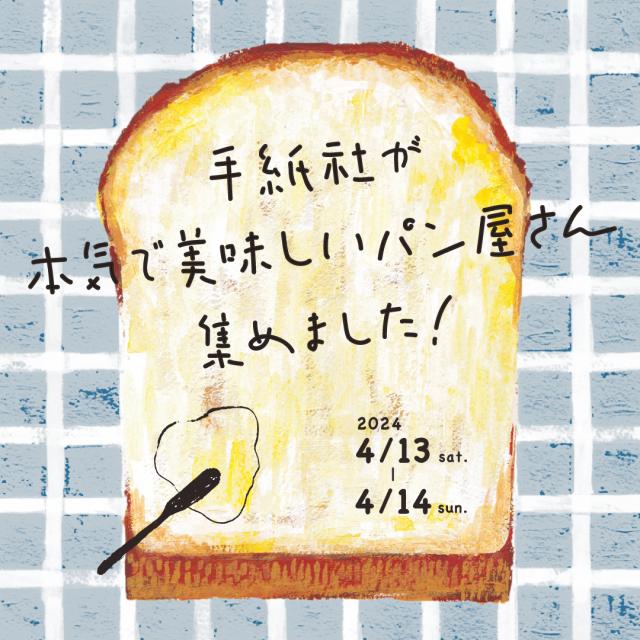 手紙社が
本気で美味しいパン屋さん
集めました!
2024
4/13 sat.
|
4/14 sun.